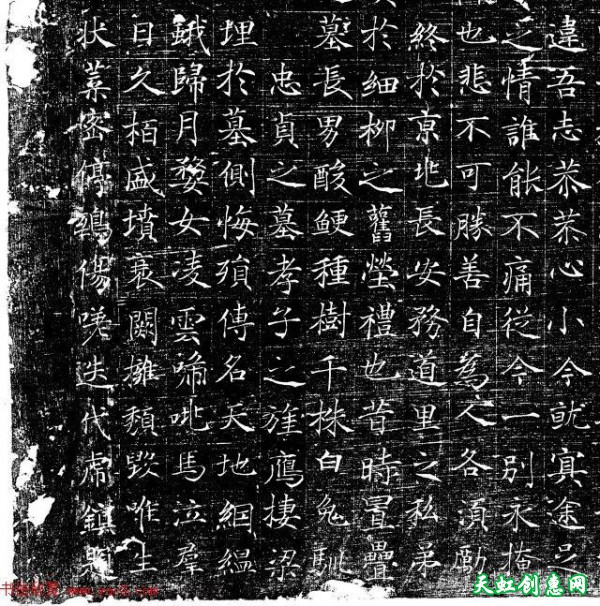 違吾志恭恭心小今就㝠途足
之情誰能不痛從今一別永掩
也悲不可勝善自為人各須勵
終於京兆長安務道里之私弟
於細柳之舊塋禮也昔時疊
墓長男酸鯁種樹千株白兔馴
忠貞之墓孝子之旌鷹棲梁
埋於墓側悔須傳名天地絪縕
蛾歸月婺女凌雲啼馬泣羣
日久栢盛墳衰闕摧頹毀唯生
狀葉密停傷嗟迭代
天虹创意网